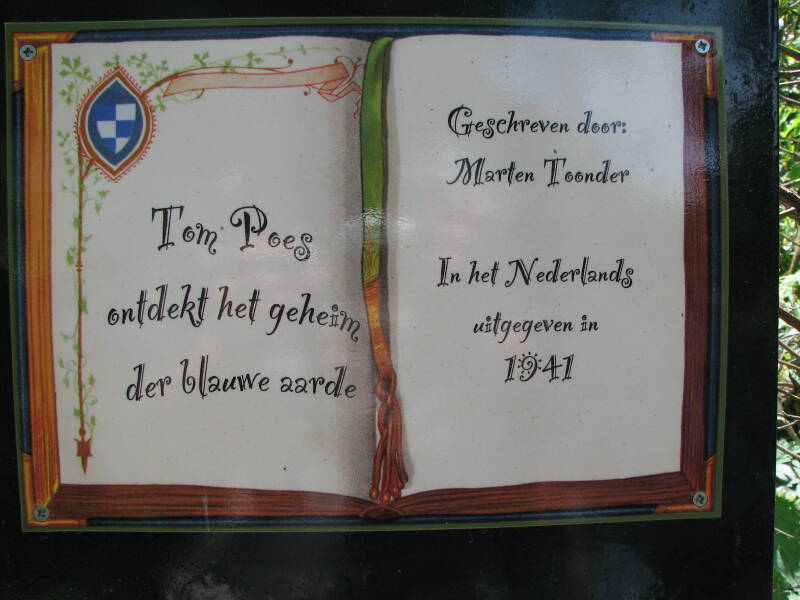 Tom Poes
ontdekt het geheim
der blauwe aarde
Geschreven door:
Marten Toonder
In het Nederlands
uitgegeven in
1941